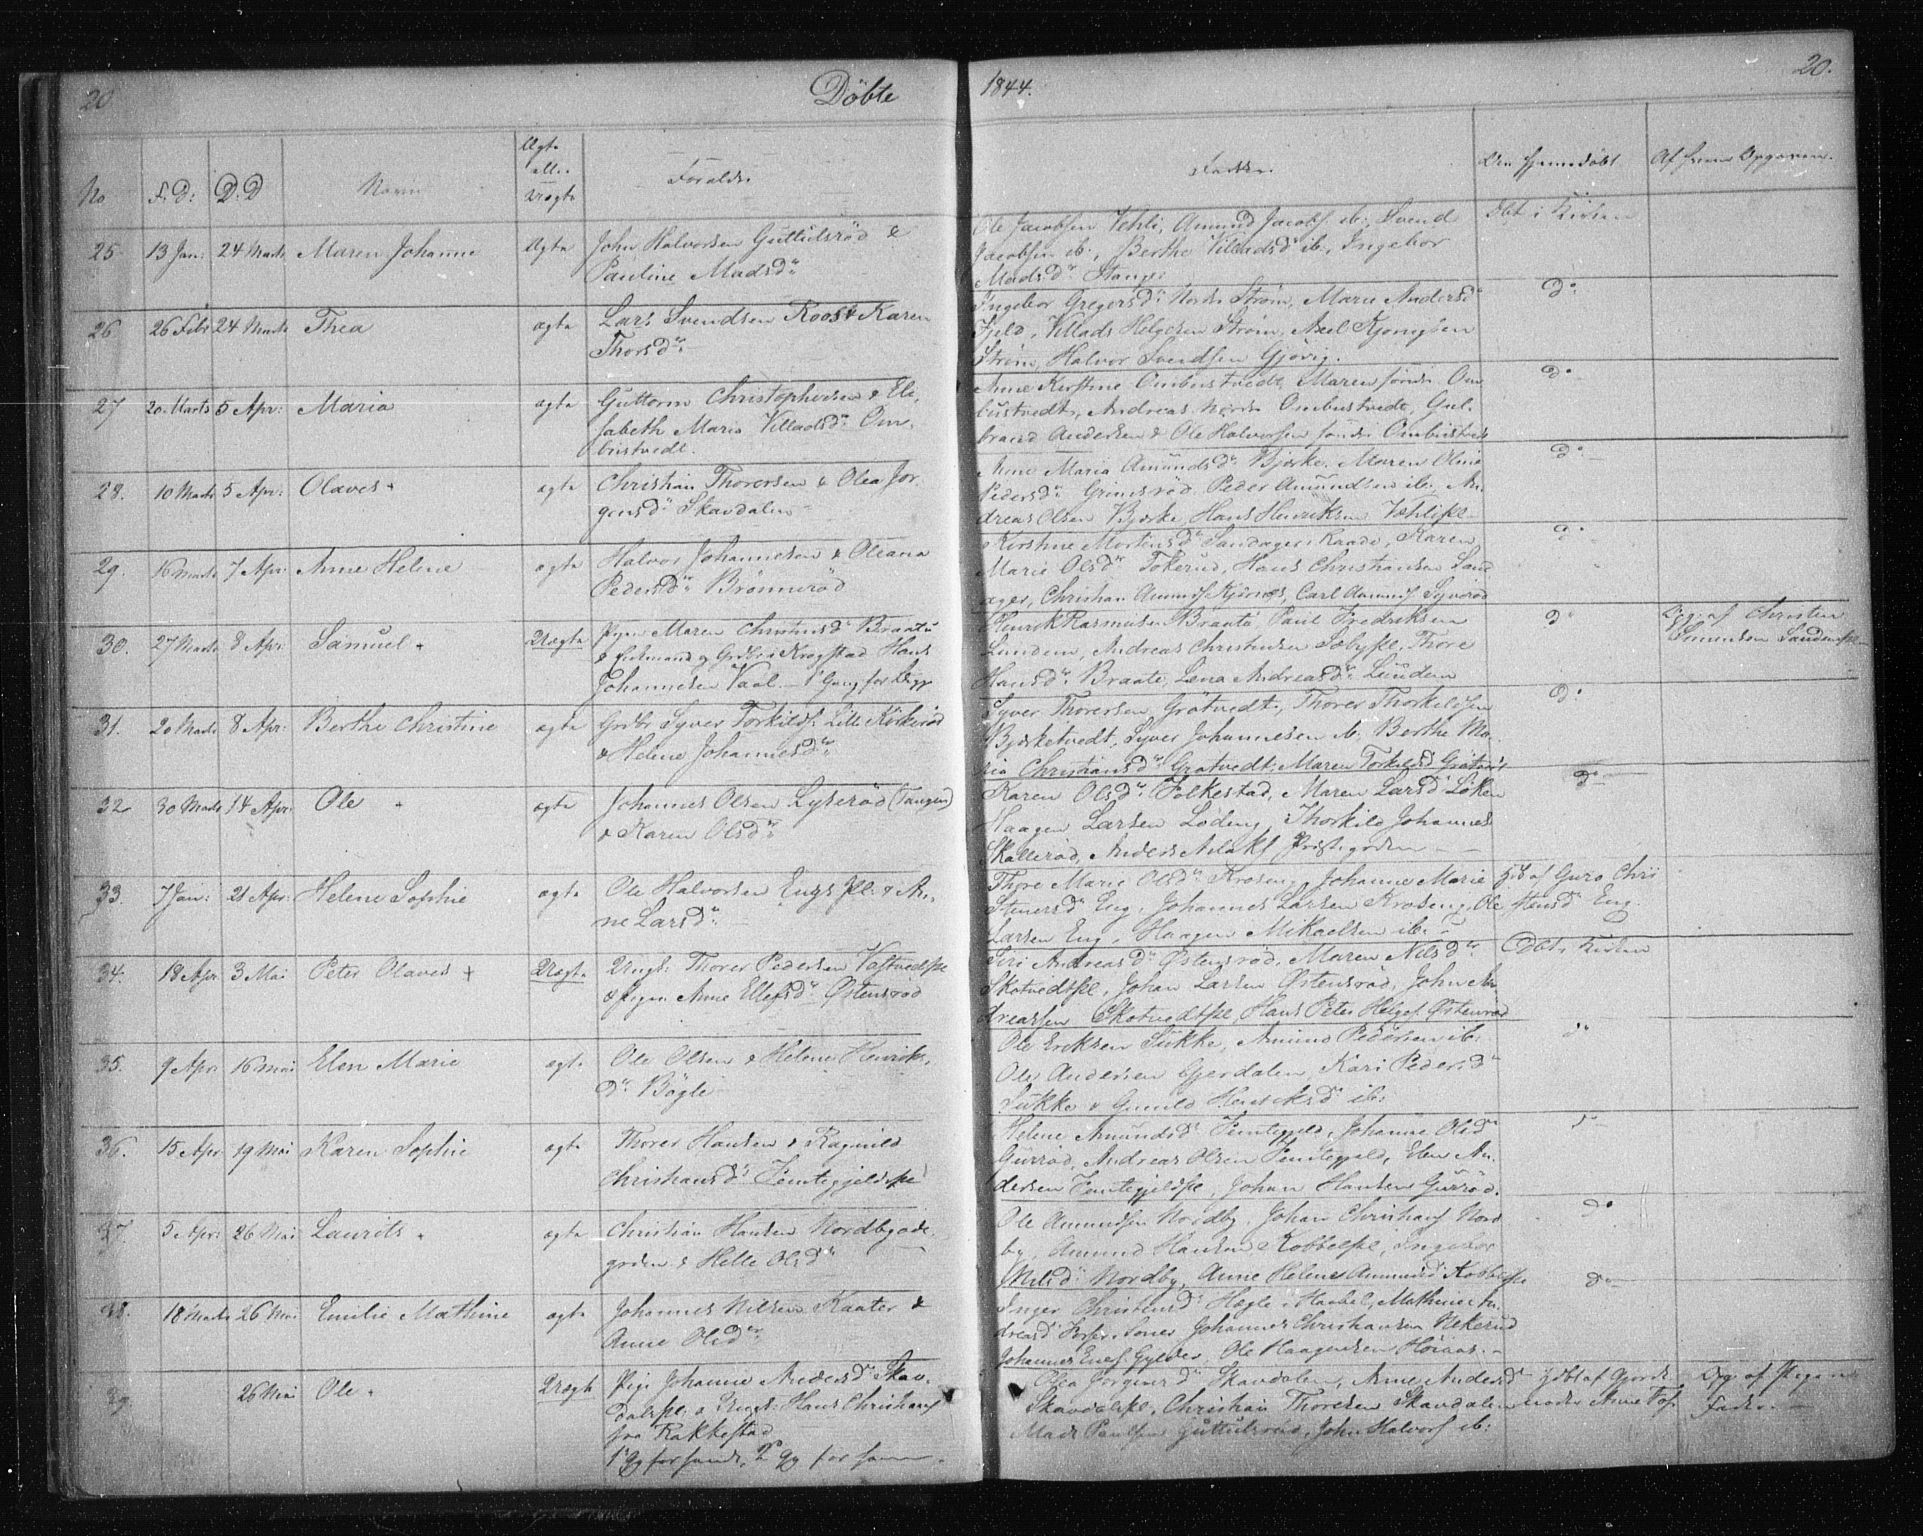 20 Döbte 1844. 20.
No F: D: D. D Navn Ægte ell. Uægte Forældre Faddre Om hjemmedöbt Af hvem Opgaven
25 13 Jan: 24 Marts Maren Johanne Ægte John Halvorsen Guttulsröd &
Pauline Madsdr
Ole Jacobsen Vehli, Amund Jacobs. ib:, Svend Dbt i Kirken
Jacobsen ib:, Berthe Villadsdr ib, Ingebor
Madsdr Stange
26 26 Febr 24 Marts Thea ægte Lars Svendsen Roos & Karen
Thorsdr
Ingebor Gregersdr Nordr Ström, Maren Andersdr Do
Fjeld, Villads Helgesen Ström, Axel
Ström, Halvor Svendsen Gjövig.
27 20 Marts 5 Apr: Maria ægte Guttorm Christophersen & Eli
sabeth Maria Villadsdr Om
bustvedt.
Anne Kirstine Ombustvedt, Maren söndr Om Do
bustvedt, Andreas Nordr Ombustvedt, Gul
brand Andersen & Ole Halvorsen söndr Ombustvedt
28. 10 Marts 5 Apr: Olaves ægte Christian Thorersen & Olea Jör
gensdr Skavdalen
Anne Maria Amundsdr Bjerke, Maren Oline Do
Pedersdr Grimsröd Peder Amundsen ib: An
dreas Olsen Bjerke, Hans Henriksen Vehlipl
29. 16 Marts 7 Apr: Anne Helene ægte Halvor Johannesen & Oleana
Pedersdr Brönneröd
Kirstine Mortensdr Sandager i Raade, Karen Do
Marie Olsdr Tokerud, Hans Christiansen Sand
ager, Christian Amunds Kjörnæs, Carl Amunds Syveröd
30. 27 Marts 8 Apr: Samuel Uægte Pigen Maren Christensdr Braate
& Enkemand og Grdbr i Krogstad Hans
Johannesen Vaal 1 Gang for Begge
Henrik Rasmusen Braate, Paul Fredriksen Do Opg: af Christen
Lunden, Andreas Christensen Sæbypl, Thore Simensen Sandenpl
Hansdr Braate, Lena Andreasdr Lunden
31. 20 Marts 8 Apr: Berthe Christine ægte Grdbr Syver Torkilds. Lille Kirkeröd
& Helene Johannesdr
Syver Thorersen Gröstvedt, Thorer Thorkildsen Do
Bjerketvedt, Syver Johannesen ib. Berthe Ma
ria Christiansdr Gröstvedt, Maren Torkildsdr Gröstvedt
32 30 Marts 14 Apr: Ole ægte Johannes Olsen Lyseröd (Tangen)
& Karen Olsdr
Karen Olsdr Folkestad, Maren Larsdr Löken Do
Haagen Larsen Löding, Thorkild Johannes
Skalleröd, Anders Præstegaarden
33. 7 Jan: 21 Apr: Helene Sophie ægte Ole Halvorsen Engs pl: & An
ne Larsdr
Thore Marie Olsdr Kroseng, Johanne Marie Hjd af Guro Chri
Stenersdr Eng, Johannes Larsen Kroseng, Ole stensdr Eng.
Larsen Eng, Haagen Mikaelsen ib:
34. 18 Apr 3 Mai Peter Olaves Uægte Ungk: Thorer Pedersen Vestvedtpl
& Pigen Anne Ellefsdr Östensröd
Siri Andreasdr Östensröd, Maren Nilsdr Dbt i Kirken
Skotvedtpl, Johan Larsen Östensröd, John An
dreassen Skotvedtpl, Hans Peter Helges. Östensröd
35. 9 Apr 16 Mai Elen Marie ægte Ole Olsen & Helene Henriks
dr Bögle
Ole Eriksen Sukke, Amund Pedersen ib: do
Ole Andersen Gjerdalen, Kari Pedersdr
Sukke & Gunild Henriksdr ib:
36. 15 Apr 19 Mai Karen Sophie ægte Thorer Hansen & Ragnild
Christiansdr Femtegjeldspl
Helene Amundsdr Femtegjeld, Johanne Olsdr Do
Gurröd, Andreas Olsen Femtegjeld, Elen An
dersen Femtegjeldpl, Johan Hansen Gurröd.
37. 5 Apr: 26 Mai Laurits ægte Christian Hansen Nordbyöde
garden & Helle Olsdr
Ole Amundsen Nordby, Johan Christians. Nord Do
by, Amund Hansen Kobbelpl, Ingebor
Nilsdr Nordby, Anne Helene Amundsdr Kobbelpl
38. 18 Marts 26 Mai Emilie Mathine ægte Johannes Nilsen Kaater &
Anne Olsdr
Inger Christensdr Hægle i Haabel, Mathine An Do
dreasdr Soner Johannes Christiansen Nekerud
Johannes Gylder, Ole Haagensen Höiaas.
39 26 Mai Ole Uægte Pige Johanne Andersdr Skav
dalspl: & Ungk: Hans Christians
fra Rakkestad
1 Gg for hende, 2 Gg for ham
Olea Jörgensdr Skavdalen, Anne Andersdr Hjdbt af Gjorde Opg: af Pigens
Skavdalspl, Christian Thoresen Skavdalen moder Anne Fader.
Mads Paulsen Guttulsröd, John Halvors. ib: